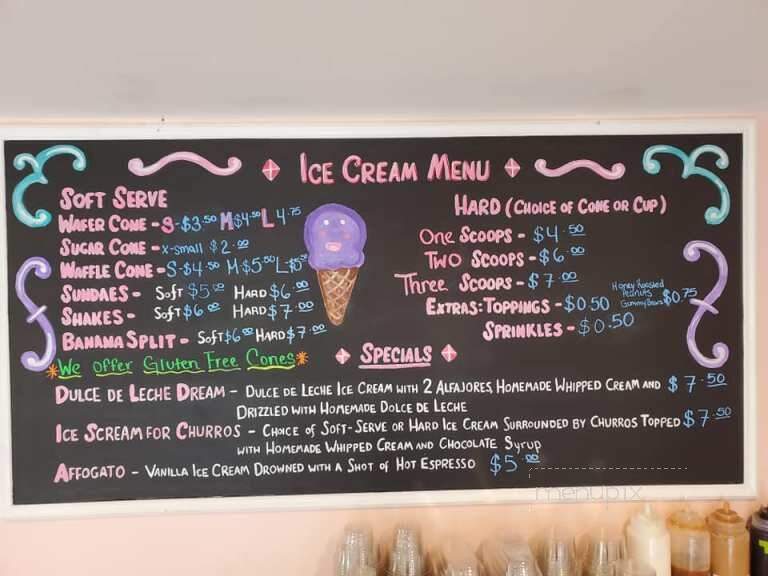 Ice Cream Menu
Soft Serve
Wafer Cone - S-$3.50 M $4.50 L 4.75
Sugar Cone - x-small $2.00
Waffle Cone - S-$4.50 M $5.50 L $5.75
Sundaes - Soft $5.50 Hard $6.00
Shakes - Soft $6.00 Hard $7.00
Banana Split - Soft $6.00 Hard $7.00
We offer Gluten Free Cones
Hard (Choice of Cone or Cup)
One Scoops - $4.50
Two Scoops - $6.00
Three Scoops - $7.00
Extras: Toppings - $0.50 Honey Roasted Peanuts Gummy Bears $0.75
Sprinkles - $0.50
Specials
Dulce de Leche Dream - Dulce de Leche Ice Cream with 2 Alfajores, Homemade Whipped Cream and $7.50
Drizzled with Homemade Dolce de Leche
Ice Scream for Churros - Choice of Soft-Serve or Hard Ice Cream Surrounded by Churros Topped $7.50
with Homemade Whipped Cream and Chocolate Syrup
Affogato - Vanilla Ice Cream Drowned with a Shot of Hot Espresso $5.00
menupix